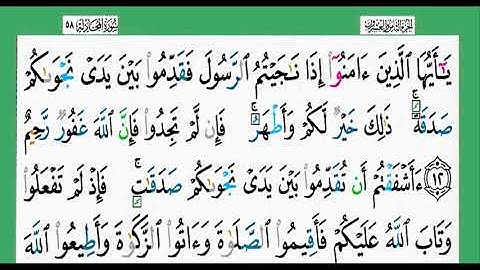 الجزء الثامن والعشرون سورة المجادلة ٥٨
يَـٰٓأَيُّهَا ٱلَّذِينَ ءَامَنُوٓا۟ إِذَا نَـٰجَيْتُمُ ٱلرَّسُولَ فَقَدِّمُوا۟ بَيْنَ يَدَىْ نَجْوَىٰكُمْ
صَدَقَةً ۚ ذَٰلِكَ خَيْرٌ لَّكُمْ وَأَطْهَرُ ۚ فَإِن لَّمْ تَجِدُوا۟ فَإِنَّ ٱللَّهَ غَفُورٌ رَّحِيمٌ
١٢ ءَأَشْفَقْتُمْ أَن تُقَدِّمُوا۟ بَيْنَ يَدَىْ نَجْوَىٰكُمْ صَدَقَـٰتٍ ۚ فَإِذْ لَمْ تَفْعَلُوا۟
وَتَابَ ٱللَّهُ عَلَيْكُمْ فَأَقِيمُوا۟ ٱلصَّلَوٰةَ وَءَاتُوا۟ ٱلزَّكَوٰةَ وَأَطِيعُوا۟ ٱللَّهَ